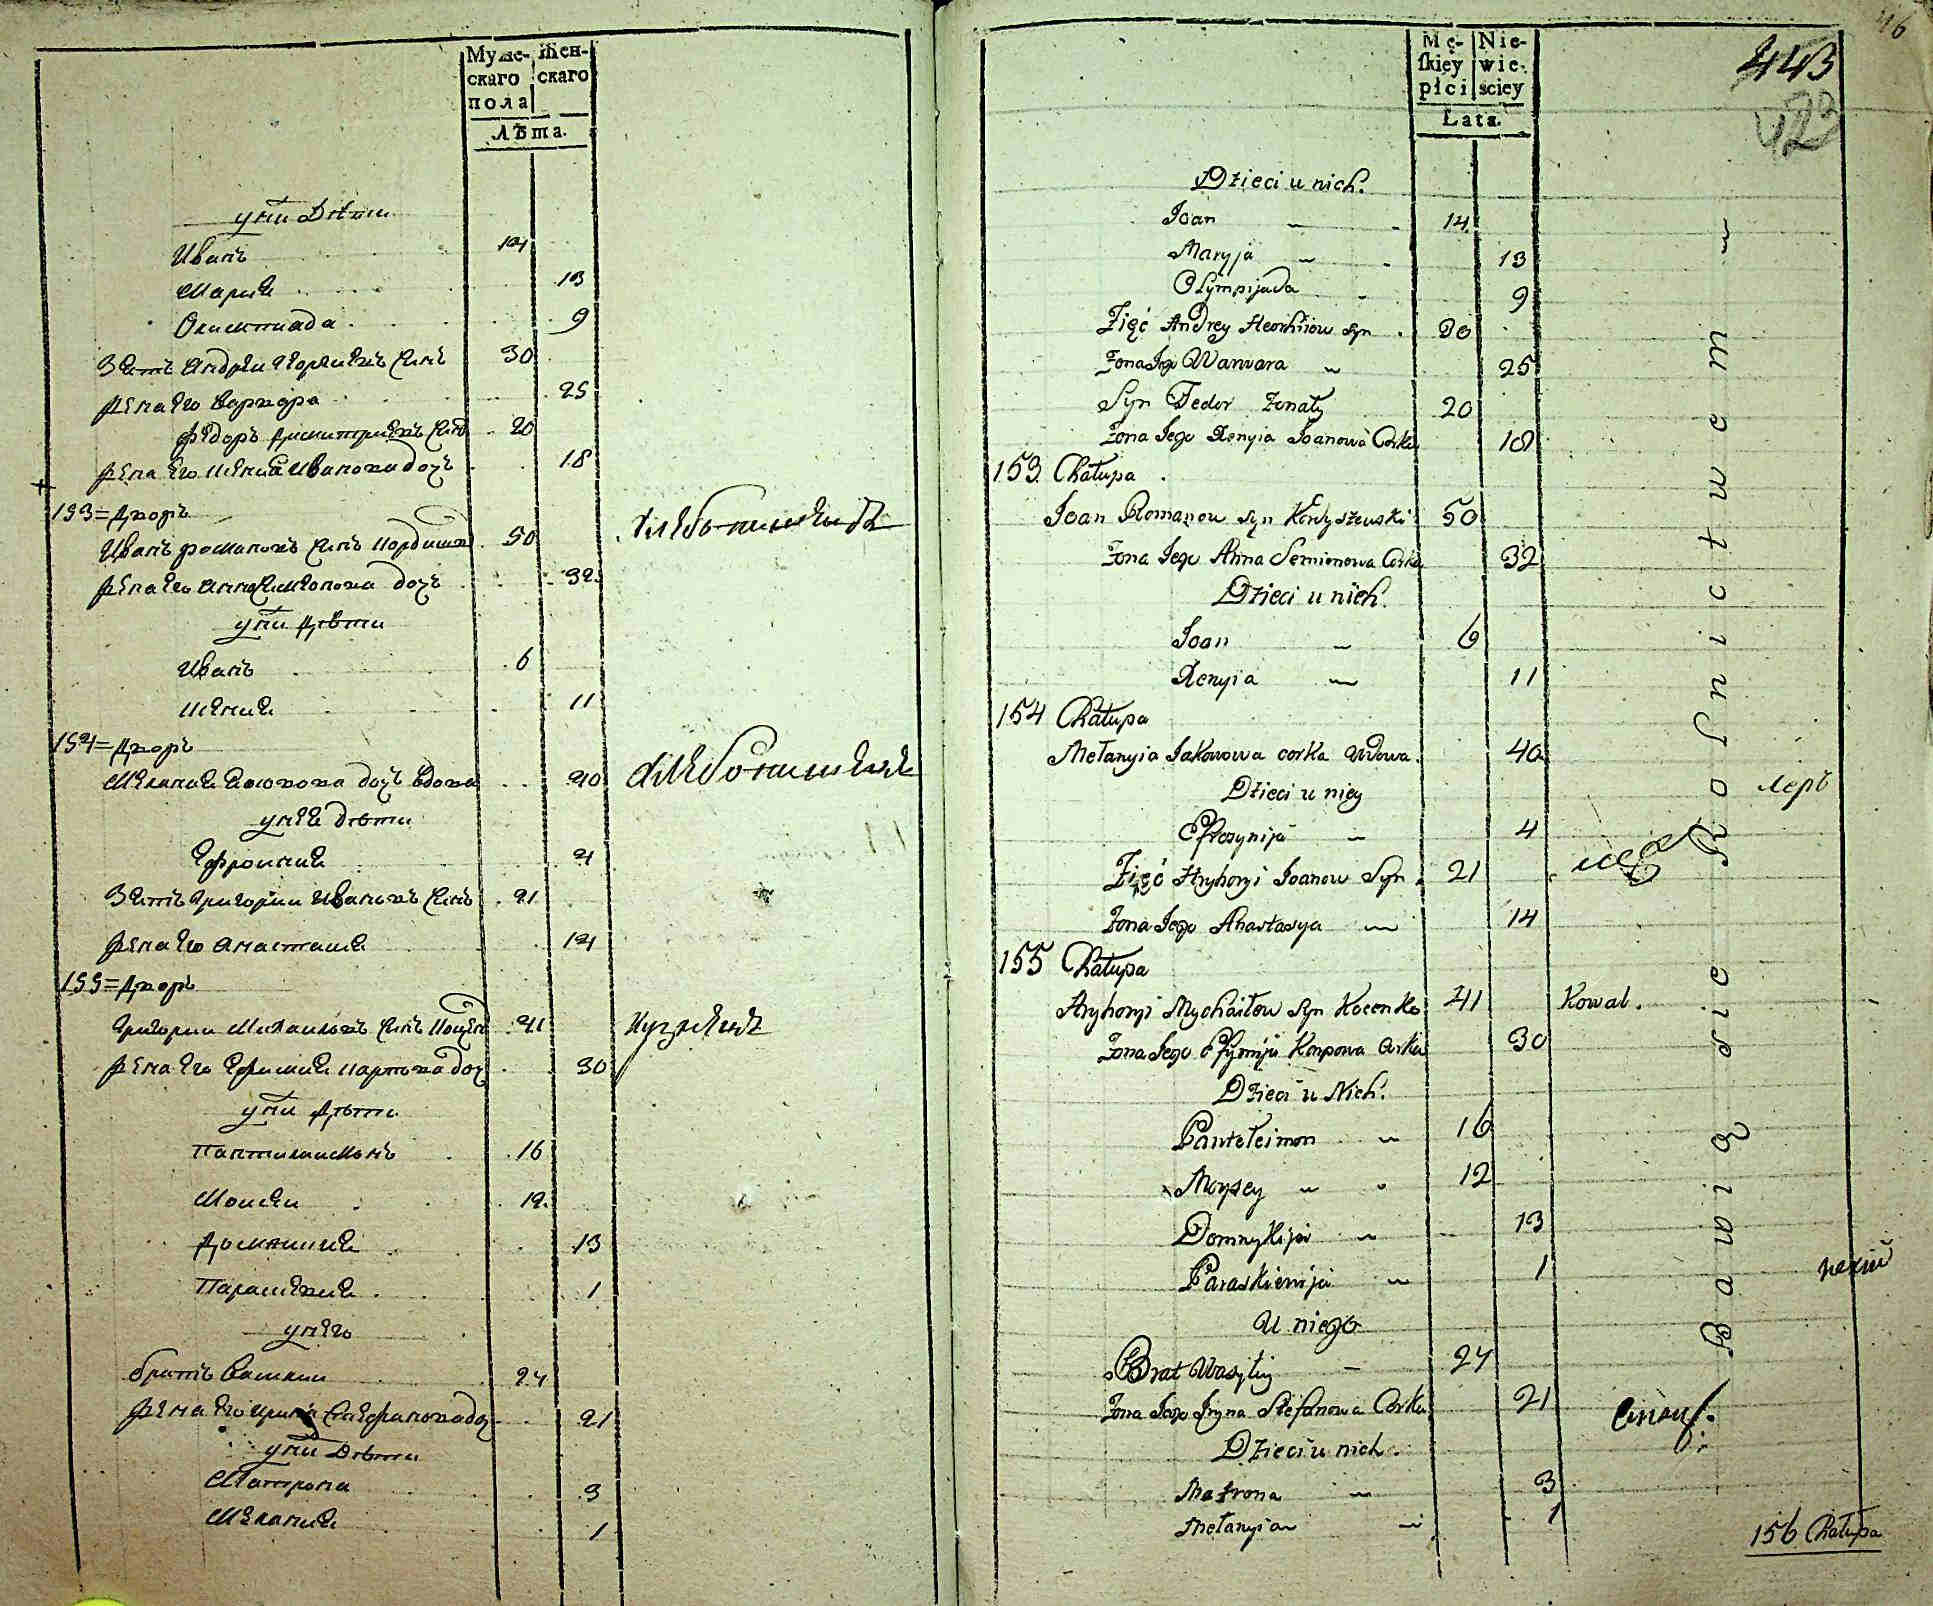 Мужескаго пола
Женскаго
Лѣта.
у ни дѣти
Иванъ 14
Мария 13
Олимпиада 9
Зять Андрей Георгиевъ сынъ 30
Жена его Варвара 25
Федоръ Димитриевъ сынъ 20
жена его Ксения Иванова дочь 18
153 = Дворъ
Иванъ Романовъ сынъ 50
жена его Анна Симионова дочь 32
у ни дѣти
Иванъ 6
Ксения 11
154 = Дворъ
Мелания дочь вдова 40
у нея дѣти
Ефросиния 4
Зять Григорий Ивановъ сынъ 21
жена его Анастасия 14
155 = Дворъ
Григорий Михаиловъ сынъ 41
жена его Ефимия Карпова доч 30
у ни дѣти
Пантилиимонъ 16
Моисей 12
Домникия 13
Параскевия 1
у него
братъ Василий 24
жена его Ирина Стефанова доч 21
у ни дѣти
Матрона 3
Мелания 1
46
443
Męſkiey płci
Niewieściey
Lata.
Dzieci u nich.
Joan 14
Maryja 13
Olympijada 9
Zięć Andrey Heorhiiow Syn 30
Zona Jego Warwara 25
Syn Fedor Zonaty 20
Zona Jego Xenyia Joanowa Corka 18
153 Chałupa
Joan Romanow Syn Kordyszewski 50
Zona Jego Anna Semionowa Corka 32
Dzieci u nich.
Joan 6
Xenyia 11
154 Chałupa
Mełanyia Jakowowa corka Wdowa. 40
Dzieci u niey
Efrosynija 4
Zięć Hryhoryi Joanow Syn 21
Zona Jego Anastasya 14
155 Chałupa
Hryhoryi Mychaiłow Syn Kocenko 41 Kowal.
Zona Jego Efymija Karpowa Corka 30
Dzieci u Nich.
Panteleimon 16
Moysey 12
Domnykija 13
Paraskiewija 1
U niego
Brat Wasyliy 24
Zona Jego Iryna Stefanowa Corka 21
Dzieci u nich.
Matrona 3
Mełanyia 1
156 Chałupa